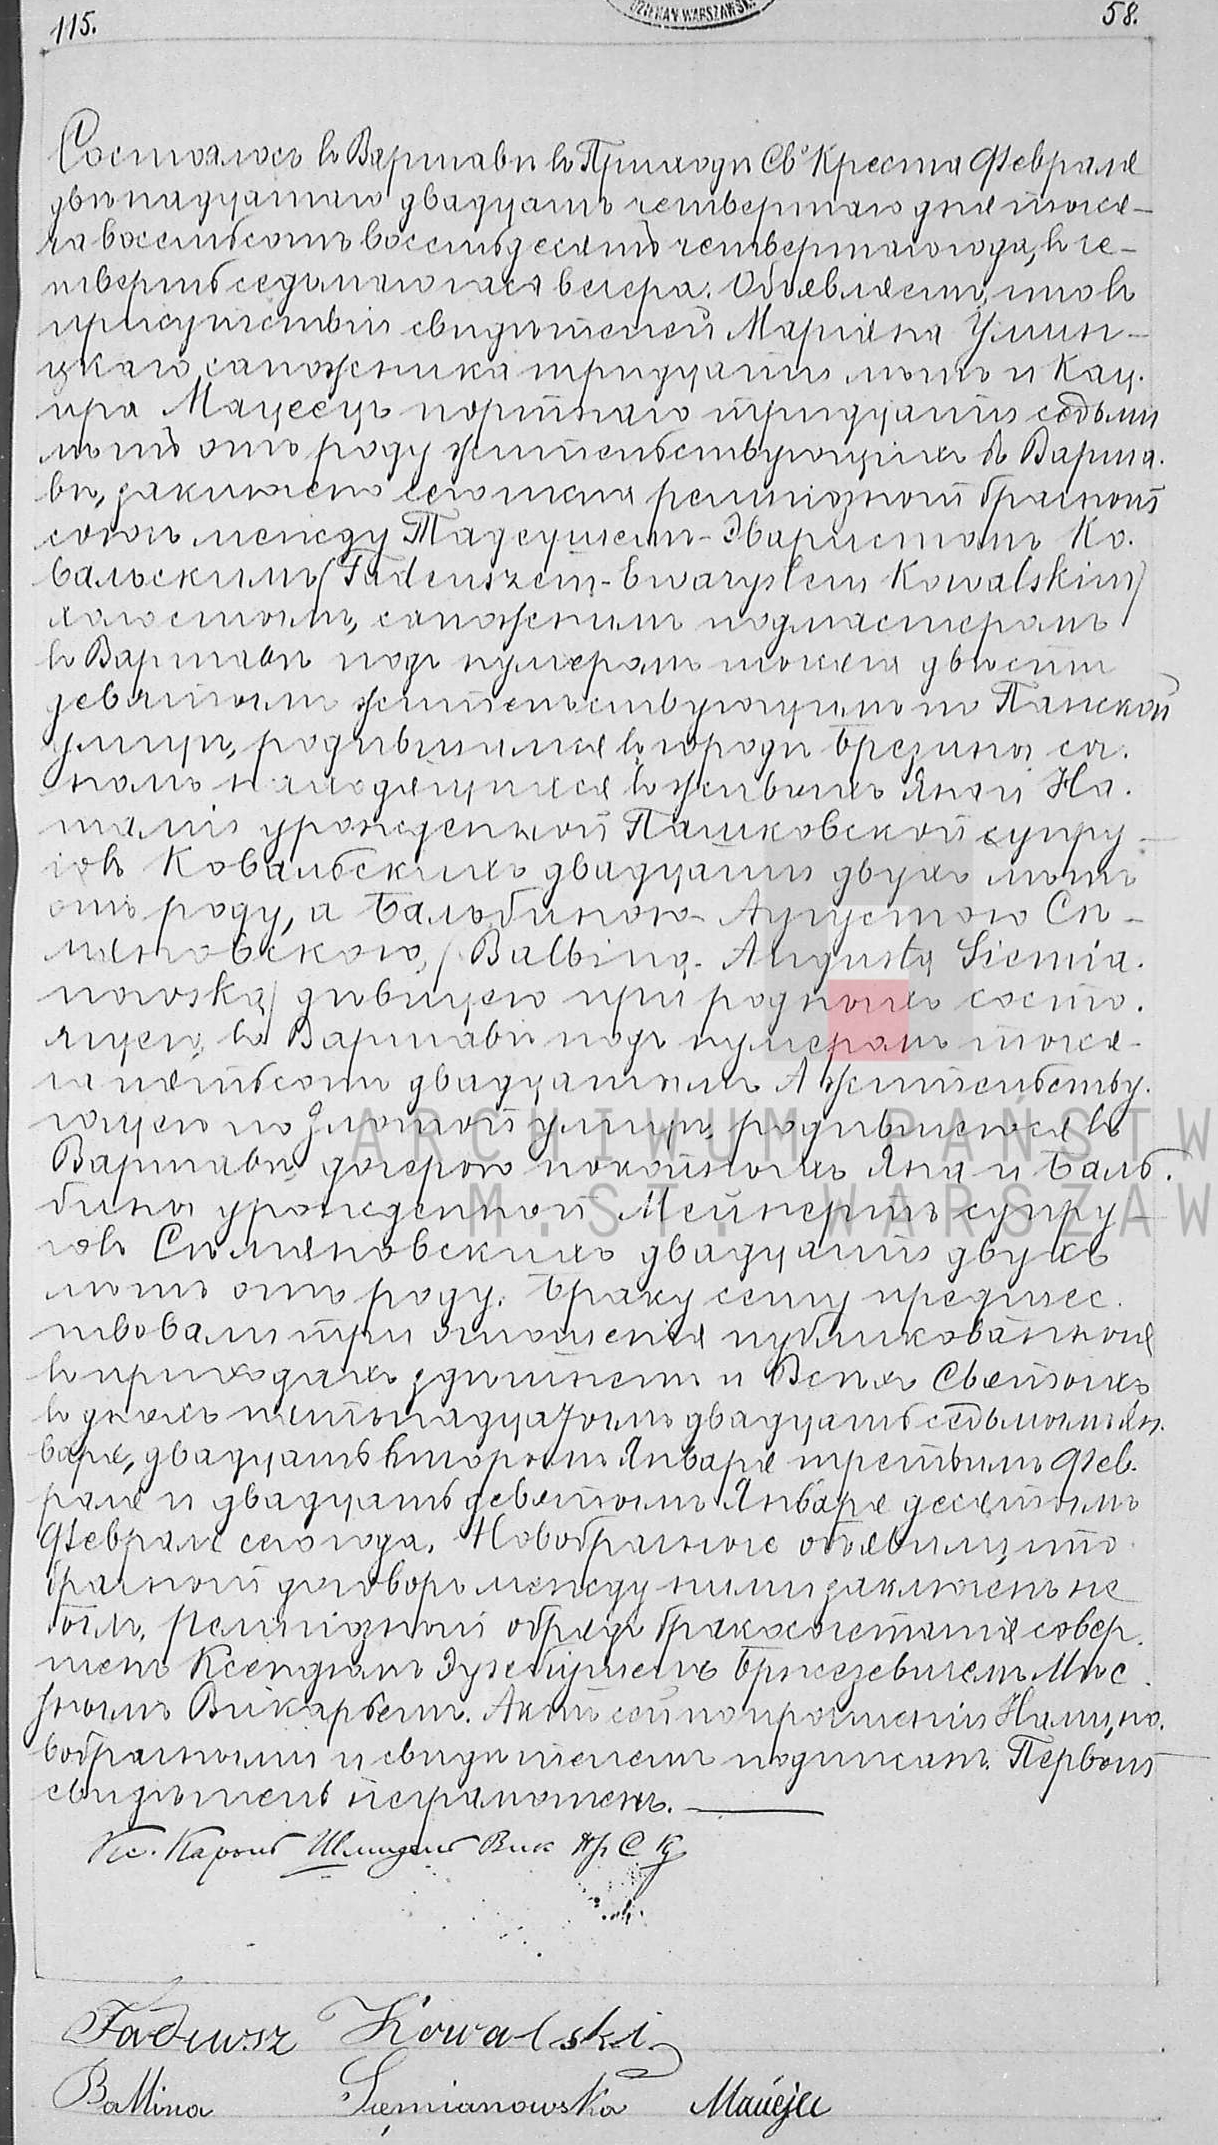 115.
58.
DZIEKAN WARSZAWSKI
Состоялось въ Варшавѣ въ Приходѣ Св. Креста Февраля
двѣнадцатаго двадцать четвертаго дня тыся-
ча восемьсотъ восемьдесятъ четвертаго года, въ че-
тверть седьмаго часа вечера. Объявляемъ, что въ
присутствіи свидѣтелей Маріяна
сапожника тридцати лѣтъ и Кац.
пра Мацеецъ портнаго тридцати седьми
лѣтъ отъ роду жительствующихъ въ Варша.
вѣ, заключенъ сегочисла религіозный брачный
союзъ между Тадеушемъ-Эваристомъ Ко.
вальскимъ (Tadeuszem-Ewarystem Kowalskim)
холостымъ, сапожнымъ подмастеромъ
въ Варшавѣ подъ нумеромъ тысяча двѣсти
девятымъ жительствующимъ по Панской
улицѣ, родившимся въ городѣ Брезины сы.
номъ находящихся въ живыхъ Яна и На.
таліи урожденной Пашковской супру-
говъ Ковальскихъ двадцати двухъ лѣтъ
отъ роду, а Бальбиною-Аугустою Сѣ-
мяновскою, (Balbiną-Augustą Siemia.
nowską) дѣвицею при родныхъ состо.
ящею, въ Варшавѣ подъ нумеромъ тыся-
ча пятьсотъ двадцатымъ А жительству.
ющею по Злотой улицѣ, родившеюся въ
Варшавѣ, дочерью покойныхъ Яна и Баль.
бины урожденной Мейнертъ супру
говъ Сѣмяновскихъ двадцати двухъ
лѣтъ отъ роду. Браку сему предшес.
твовали три оглашенія публикованныя
въ приходахъ здѣшнемъ и Всѣхъ Святыхъ
въ дняхъ пятьнадцатомъ двадцать седьмомъ Ян.
варя, двадцать второмъ Января третьемъ Фев.
раля и двадцать девятомъ Января десятомъ
Февраля сего года. Новобрачные объявили, что
брачный договоръ между ними заключенъ не
былъ. Религіозный обрядъ бракосочетанія совер.
шенъ Ксендзомъ Эузебіушемъ Брысевичемъ Мѣс.
тнымъ Викарьемъ. Актъ сей по прочтеніи Нами, но.
вобрачными и свидѣтелемъ подписанъ. Первый
свидѣтель неграмотенъ.
Кс. Кароль Шмидель Вик Пр С К
Tadeusz Kowalski
Balbina Siemianowska Maciejec
ARCHIWUM PAŃSTW
M.ST. WARSZAW